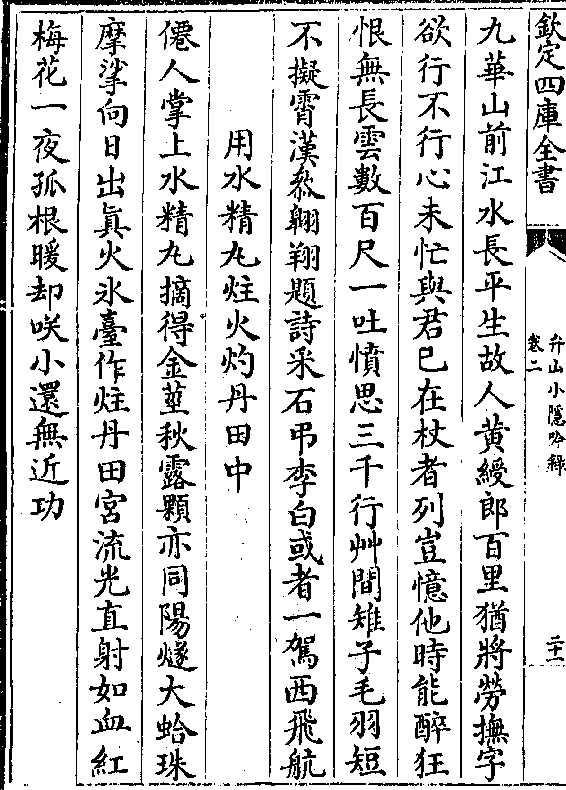 欽定四庫全書
弁山小隱吟錄
卷二
二十一
九華山前江水長平生故人黃綬郎百里猶將勞撫字
欲行不行心未忙與君已在杖者列豈憶他時能醉狂
恨無長雲數百尺一吐憤思三千行艸間雉子毛羽短
不擬霄漢叅翺翔題詩采石弔李白或者一駕西飛航
用水精丸炷火灼丹田中
僊人掌上水精丸摘得金莖秋露顆亦同陽燧大蛤珠
摩挲向日出眞火氷臺作炷丹田宮流光直射如血紅
梅花一夜孤根暖却咲小還無近功